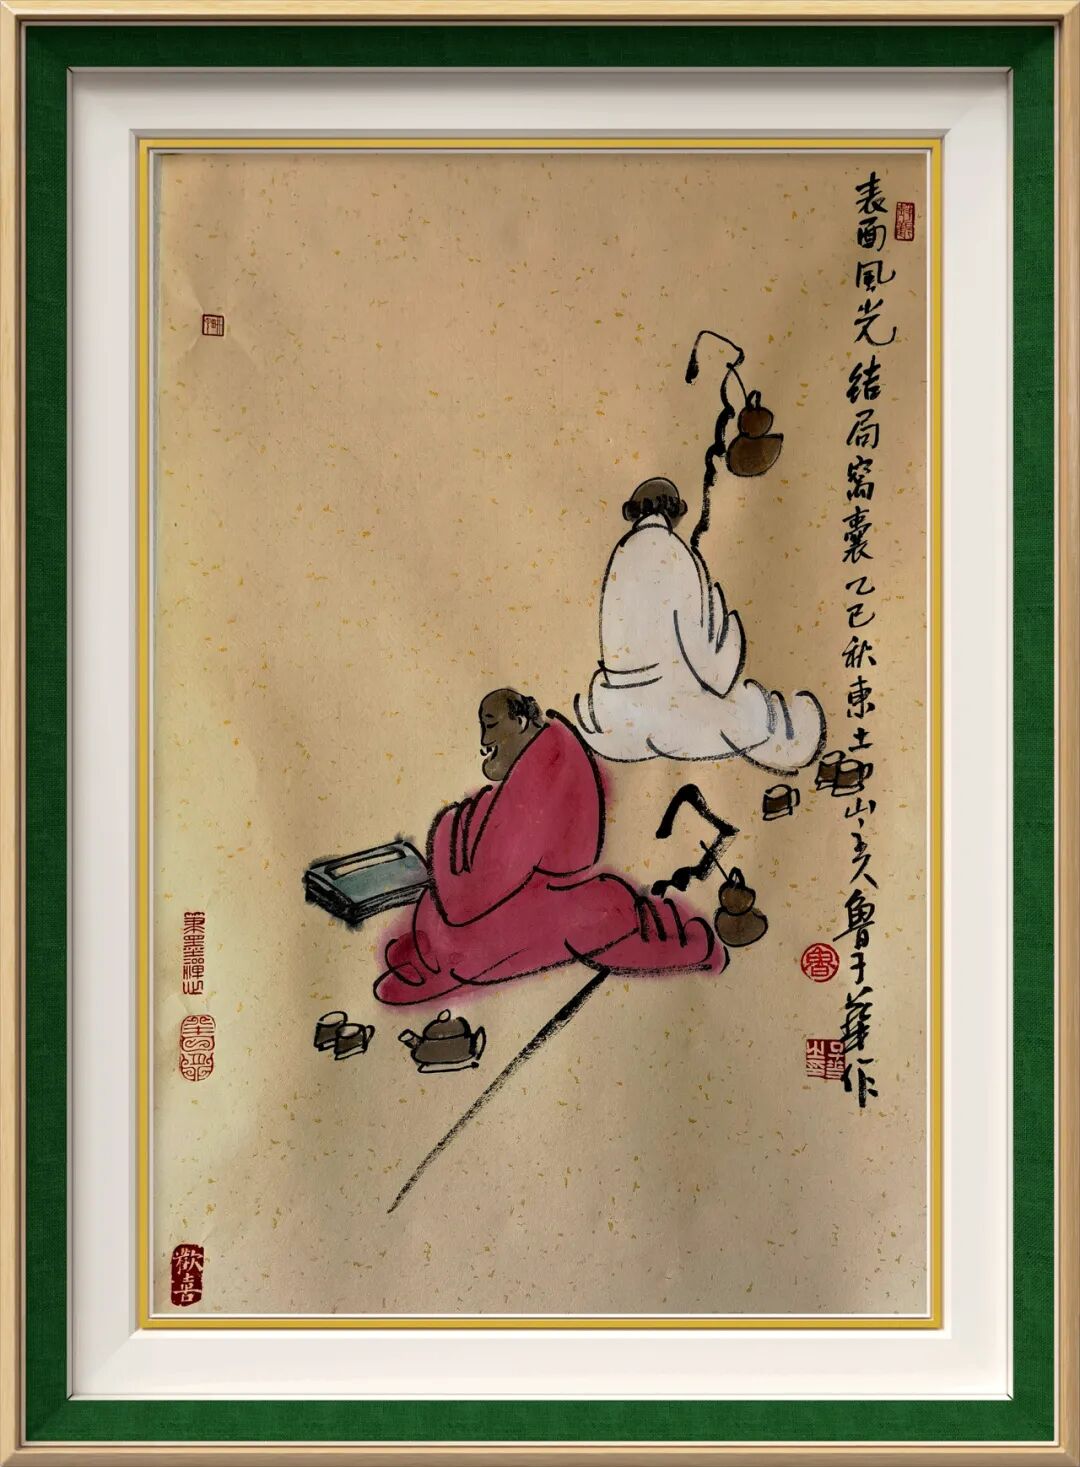 表面風光 結局窩囊 乙巳秋東土山人魯子華作
魯
筆墨禪心
歡喜